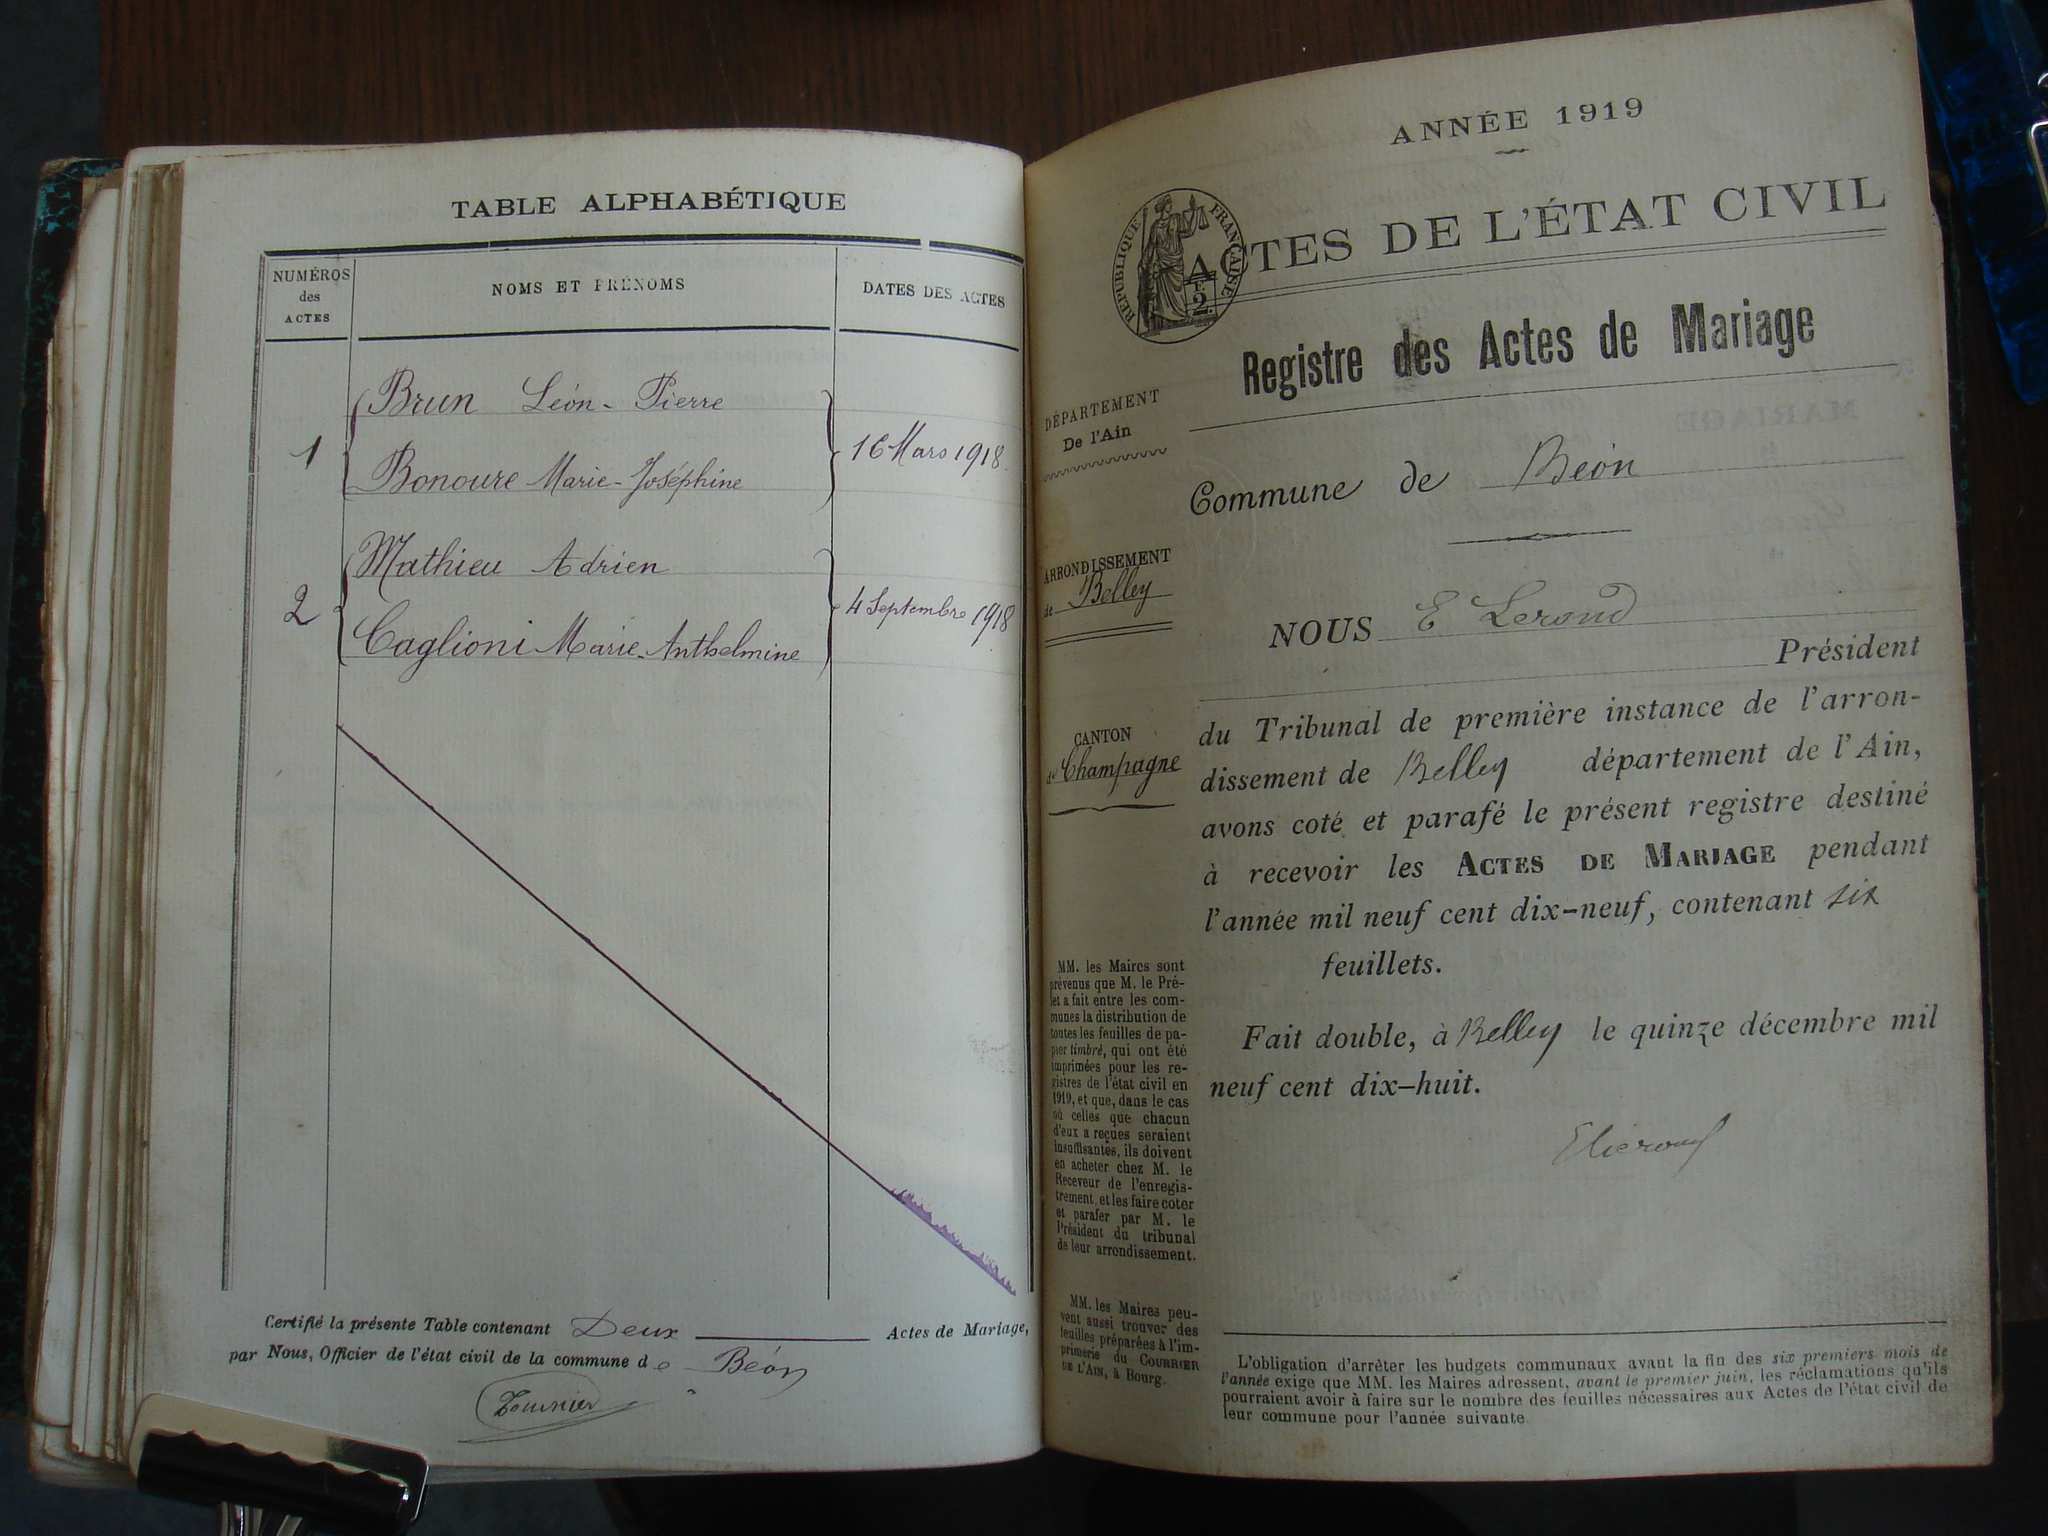 TABLE ALPHABÉTIQUE
NUMÉROS
des
ACTES
NOMS ET PRÉNOMS
DATES DES ACTES
Brun Léon-Pierre
1
16 Mars 1918
Bonoure Marie-Joséphine
Mathieu Adrien
2
4 Septembre 1918
Caglioni Marie-Anthelmine
Certifié la présente Table contenant Deux Actes de Mariage,
par Nous, Officier de l'état civil de la commune de Béon
Tournier
ANNÉE 1919
RÉPUBLIQUE FRANÇAISE
2
ACTES DE L'ÉTAT CIVIL
Registre des Actes de Mariage
DÉPARTEMENT
De l'Ain
Commune de Béon
ARRONDISSEMENT
de Belley
NOUS E
Président
CANTON
de Champagne
du Tribunal de première instance de l'arron-
dissement de Belley département de l'Ain,
avons coté et parafé le présent registre destiné
à recevoir les ACTES DE MARIAGE pendant
l'année mil neuf cent dix-neuf, contenant six
feuillets.
Fait double, à Belley le quinze décembre mil
neuf cent dix-huit.
MM. les Maires sont
prévenus que M. le Pré-
fet a fait entre les com-
munes la distribution de
toutes les feuilles de pa-
pier timbré, qui ont été
imprimées pour les re-
gistres de l'état civil en
1919, et que, dans le cas
où celles que chacun
d'eux a reçues seraient
insuffisantes, ils doivent
en acheter chez M. le
Receveur de l'enregis-
trement, et les faire coter
et parafer par M. le
Président du tribunal
de leur arrondissement.
MM. les Maires peu-
vent aussi trouver des
feuilles préparées à l'im-
primerie du COURRIER
DE L'AIN, à Bourg.
L'obligation d'arrêter les budgets communaux avant la fin des six premiers mois de
l'année exige que MM. les Maires adressent, avant le premier juin, les réclamations qu'ils
pourraient avoir à faire sur le nombre des feuilles nécessaires aux Actes de l'état civil de
leur commune pour l'année suivante.